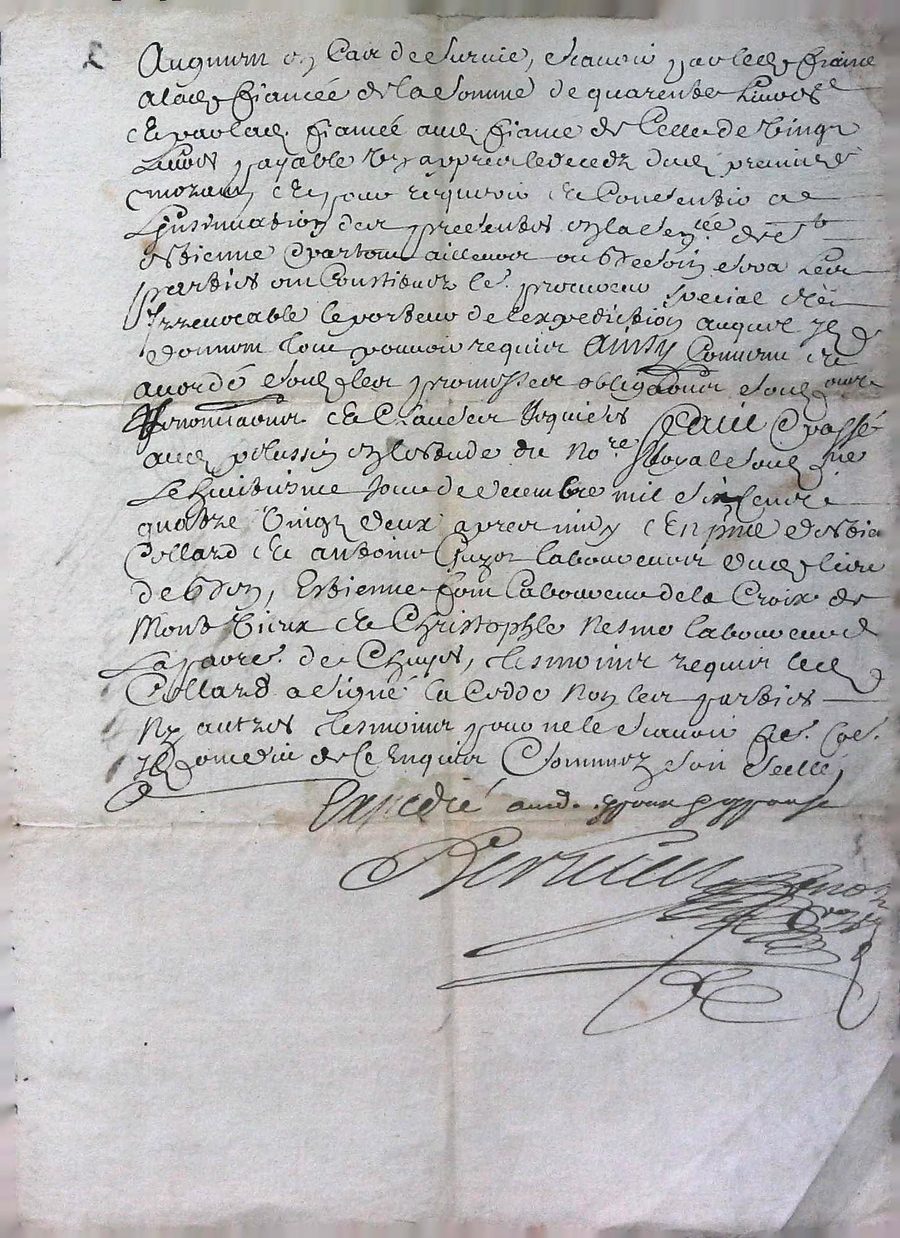 Augment en Cas de Survie, Scavoir par led. fiancé
a lad. fiancée de la Somme de quarente Livres
et par lad. fiancée aud. fiancé de Celle de Vingt
Livres payable un an apres le decedz du premier
mourant et pour requerir et Consentir a
L'insinuation des presentes en la Sen.cée de S.t
Estienne et partout ailleurs ou besoin sera Les
parties ont Constitué le.r procureur special et
Irrevocable le porteur de l'expedition auquel ilz
donnent tout pouvoir requis Ainsy Convenu et
acordé soubz les promesses obligations soubz
Renontiations et Clauses requises faict et passé
aud. pelussin en l'estude du No.re Royal soubz.né
Le huictiesme Jour de decembre mil six cents
quatre vingt deux apres midy en p.nce d'Estie
Collard et antoine laboureurs dud. lieu
de , Estienne laboureur de la Croix de
Mont Vieux et Christophle Nesme laboureur de
La parr.e de Chuyes, tesmoins requis led.
Collard a Signé la Cedde Non les parties
Ny autres tesmoins pour ne le Scavoir
de ce Enquis et Sommez Soit Scellé,
Expedié aud. espoux